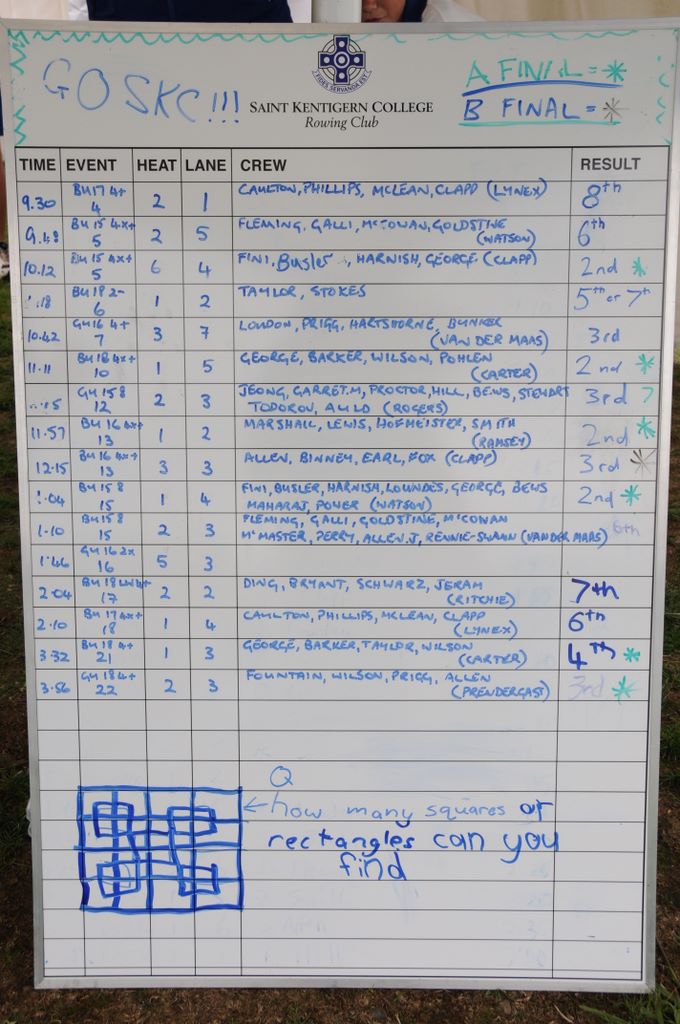 GO SKC!!!
FIDES SERVANDA EST
SAINT KENTIGERN COLLEGE
Rowing Club
A FINAL = *
B FINAL = *
TIME EVENT HEAT LANE CREW RESULT
9.30 BU17 4+ 4 2 1 CAULTON, PHILLIPS, MCLEAN, CLAPP (LYNEX) 8th
9.48 BU15 4x+ 5 2 5 FLEMING, GALLI, McCOWAN, GOLDSTINE (WATSON) 6th
10.12 BU15 4x+ 5 6 4 FINI, Busler, HARNISH, GEORGE (CLAPP) 2nd *
.18 BU18 2- 6 1 2 TAYLOR, STOKES 5th or 7th
10.42 GU16 4+ 7 3 7 LOUDON, PRIGG, HARTSHORNE, BUNKER (VAN DER MAAS) 3rd
11.11 BU18 4x+ 10 1 5 GEORGE, BARKER, WILSON, POHLEN (CARTER) 2nd *
GU15 8 12 2 3 JEONG, GARRET.M, PROCTOR, HILL, BEWS, STEWART 3rd ?
TODOROV, AULD (ROGERS)
11.57 BU16 4x+ 13 1 2 MARSHALL, LEWIS, HOFMEISTER, SMITH (RAMSEY) 2nd *
12.15 BU16 4x+ 13 3 3 ALLEN, BINNEY, EARL, FOX (CLAPP) 3rd *
1.04 BU15 8 15 1 4 FINI, BUSLER, HARNISH, LOWNDES, GEORGE, BEWS 2nd *
MAHARAJ, POWER (WATSON)
1.10 BU15 8 15 2 3 FLEMING, GALLI, GOLDSTINE, McCOWAN
McMASTER, PERRY, ALLEN.J, RENNIE-SWANN (VAN DER MAAS) 6th
1.46 GU16 2x 16 5 3
2.04 BU18 4+ 17 2 2 DING, BRYANT, SCHWARZ, JERAM (RITCHIE) 7th
2.10 BU17 4x+ 18 1 4 CAULTON, PHILLIPS, MCLEAN, CLAPP (LYNEX) 6th
3.32 BU18 4+ 21 1 3 GEORGE, BARKER, TAYLOR, WILSON (CARTER) 4th *
3.56 GU18 4+ 22 2 3 FOUNTAIN, WILSON, PRIGG, ALLEN (PRENDERGAST) 3rd *
Q
how many squares or
rectangles can you
find